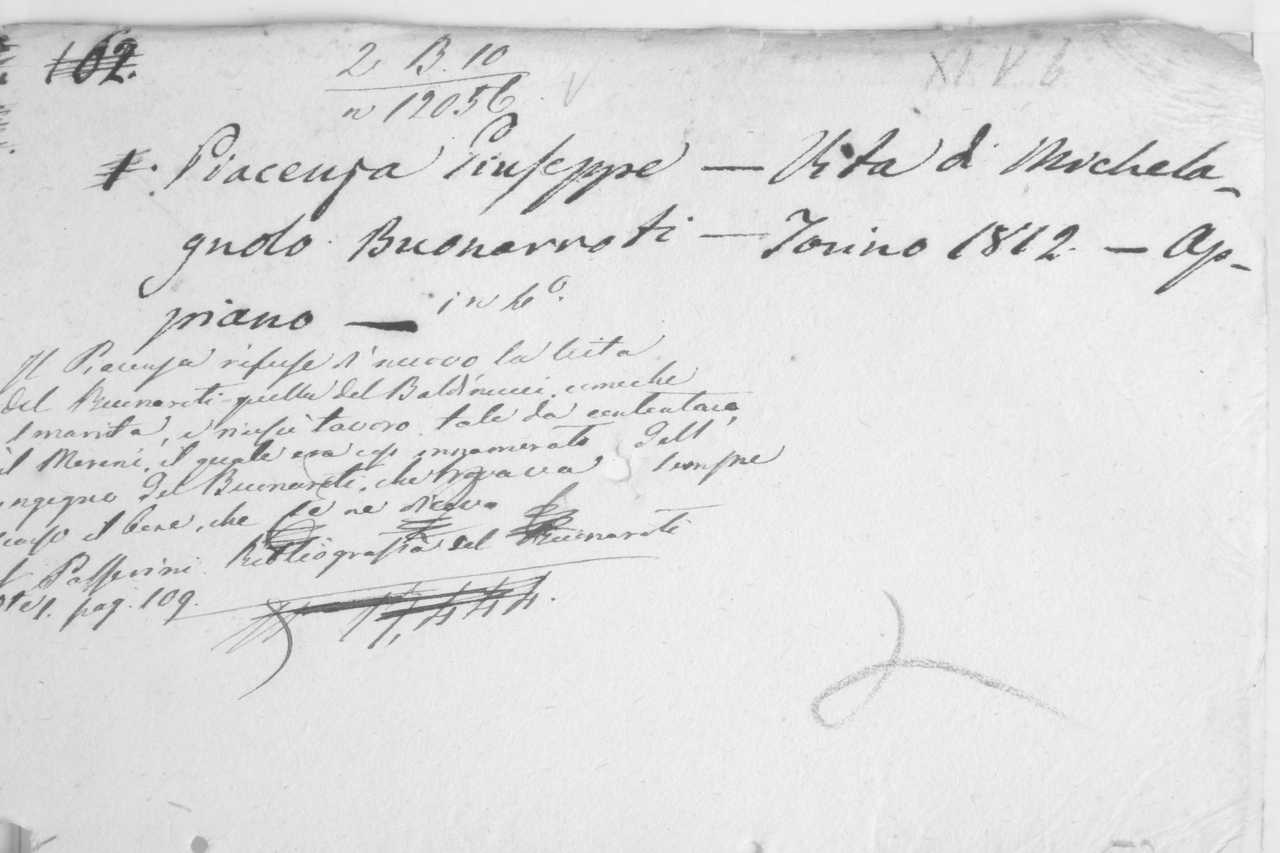 162.
2 B. 10
n 12056
XI. V. 6
Piacenza Giuseppe — Vita di Michela-
gnolo Buonarroti — Torino 1812. — Ap-
piano — in 4°.
Il Piacenza rifuse di nuovo la vita
del Buonaroti quella del Baldinucci, comechè
smarrita, e riuscì lavoro tale da contentare
il Moreni, il quale era così innamorato dell'
ingegno del Buonaroti, che trovava sempre
scarso il bene, che se ne diceva
Passerini Bibliografia del Buonaroti
pag. 109.